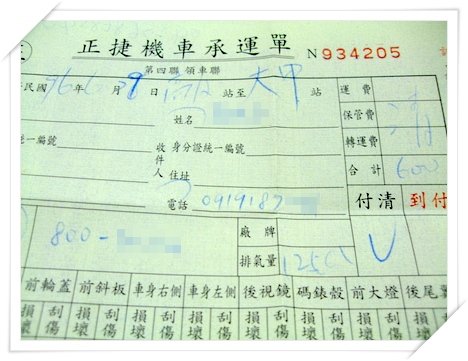 正捷機車承運單 N 934205
第四聯 領車聯
民國 96 年 月 日 站至 大甲 站 運費
姓名 保管費
統一編號 收件人 身分證統一編號 轉運費
住址 合計 600
電話 0919187 付清 到付
800- 廠牌
排氣量 125 V
前輪蓋 前斜板 車身右側 車身左側 後視鏡 碼錶殼 前大燈 後尾
損壞 刮傷 損壞 刮傷 損壞 刮傷 損壞 刮傷 損壞 刮傷 損壞 刮傷 損壞 刮傷 損